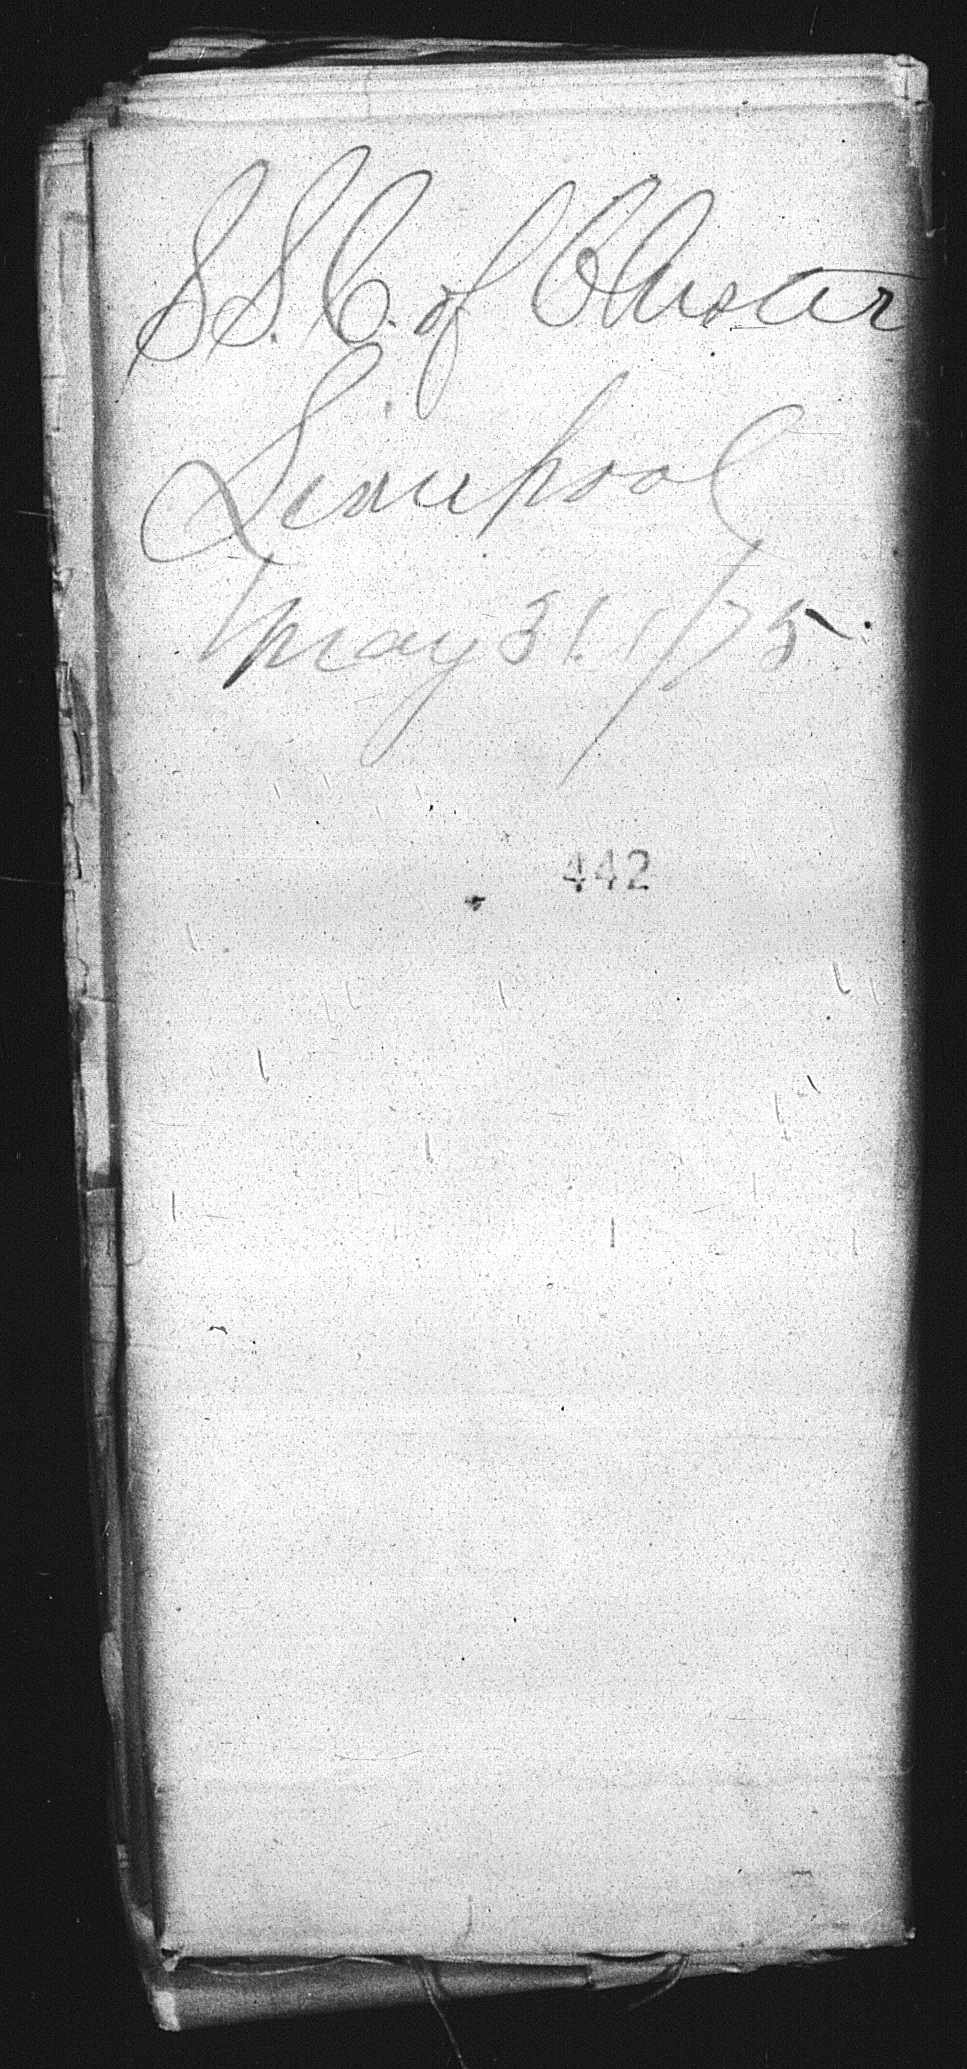 S.S. C. of Chester
Liverpool
May 31. 1/75
442